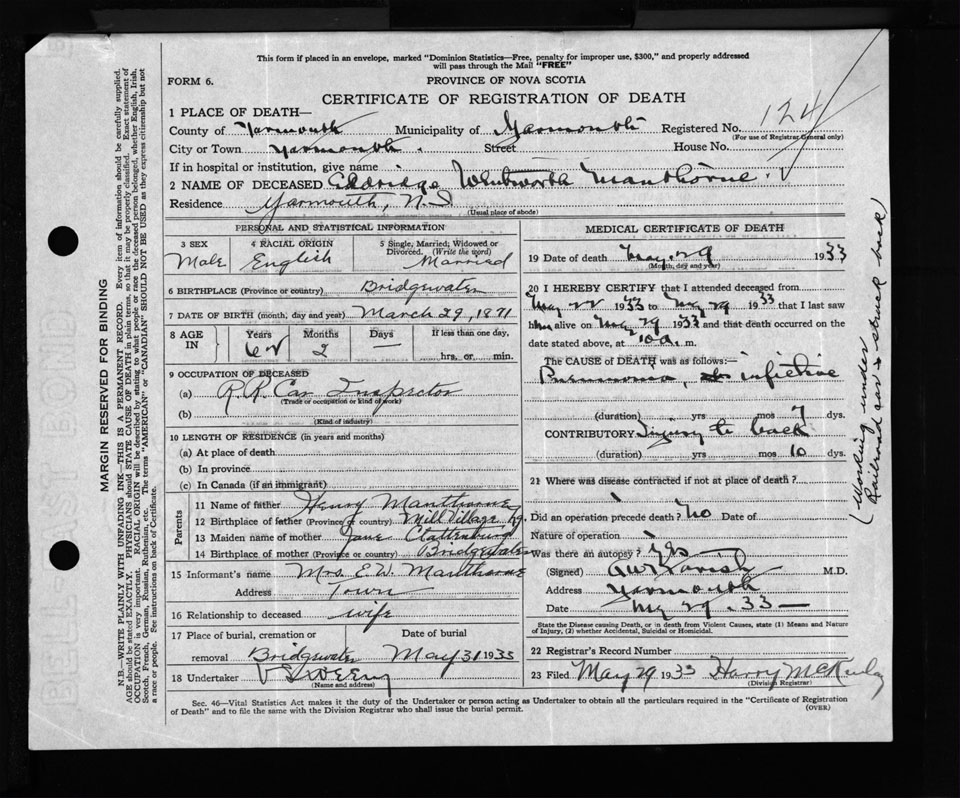 This form if placed in an envelope, marked "Dominion Statistics—Free, penalty for improper use, $300," and properly addressed
will pass through the Mail "FREE"
FORM 6.
PROVINCE OF NOVA SCOTIA
CERTIFICATE OF REGISTRATION OF DEATH
1 PLACE OF DEATH—
County of Yarmouth Municipality of Yarmouth Registered No. 124
(For use of Registrar General only)
City or Town Yarmouth. Street House No.
If in hospital or institution, give name
2 NAME OF DECEASED Eldridge Wentworth Manthorne.
Residence Yarmouth, N.S
(Usual place of abode)
PERSONAL AND STATISTICAL INFORMATION
3 SEX 4 RACIAL ORIGIN 5 Single, Married, Widowed or
Divorced. (Write the word)
Male English Married
6 BIRTHPLACE (Province or country) Bridgewater
7 DATE OF BIRTH (month, day and year) March 29, 1871
8 AGE IN Years Months Days If less than one day,
62 2 — hrs. or min.
9 OCCUPATION OF DECEASED
(a) R.R. Car Inspector
(Trade or occupation or kind of work)
(b)
(Kind of industry)
10 LENGTH OF RESIDENCE (in years and months)
(a) At place of death
(b) In province
(c) In Canada (if an immigrant)
Parents
11 Name of father Henry Manthorne
12 Birthplace of father (Province or country) Mill Village
13 Maiden name of mother Jane Clattenburg
14 Birthplace of mother (Province or country) Bridgewater
15 Informant's name Mrs. E.W. Manthorne
Address Town
16 Relationship to deceased wife
17 Place of burial, cremation or Date of burial
removal Bridgewater May 31 1933
18 Undertaker V Sweeny
(Name and address)
MEDICAL CERTIFICATE OF DEATH
19 Date of death May. 29 1933
(Month, day and year)
20 I HEREBY CERTIFY that I attended deceased from
May 22 1933 to May 29 1933 that I last saw
him alive on May 29 1933 and that death occurred on
date stated above, at 10 a. m.
The CAUSE OF DEATH was as follows:
Pneumonia, infective
(duration) yrs mos 7 dys.
CONTRIBUTORY Injury to back
(duration) yrs mos 10 dys.
21 Where was disease contracted if not at place of death?
Did an operation precede death? No Date of
Nature of operation
Was there an autopsy? Yes
(Signed) M.D.
Address Yarmouth
Date May 29. 33—
State the Disease causing Death, or in death from Violent Causes, state (1) Means and Nature
of Injury, (2) whether Accidental, Suicidal or Homicidal.
22 Registrar's Record Number
23 Filed May 29 1933 Harry McKinlay
(Division Registrar)
Sec. 46—Vital Statistics Act makes it the duty of the Undertaker or person acting as Undertaker to obtain all the particulars required in the "Certificate of Registration
of Death" and to file the same with the Division Registrar who shall issue the burial permit.
(OVER)
(Working under
Railroad car & struck back)
MARGIN RESERVED FOR BINDING
N.B.—WRITE PLAINLY WITH UNFADING INK—THIS IS A PERMANENT RECORD. Every item of information should be carefully supplied.
AGE should be stated EXACTLY. PHYSICIANS should STATE CAUSE OF DEATH in plain terms, so that it may be properly classified. Exact statement of
OCCUPATION is very important. RACIAL ORIGIN will be described by stating to what people or race the deceased person belonged, whether English, Irish,
Scotch, French, German, Russian, Ruthenian, etc. The terms "AMERICAN" or "CANADIAN" SHOULD NOT BE USED as they express citizenship but not
a race or people. See instructions on back of Certificate.